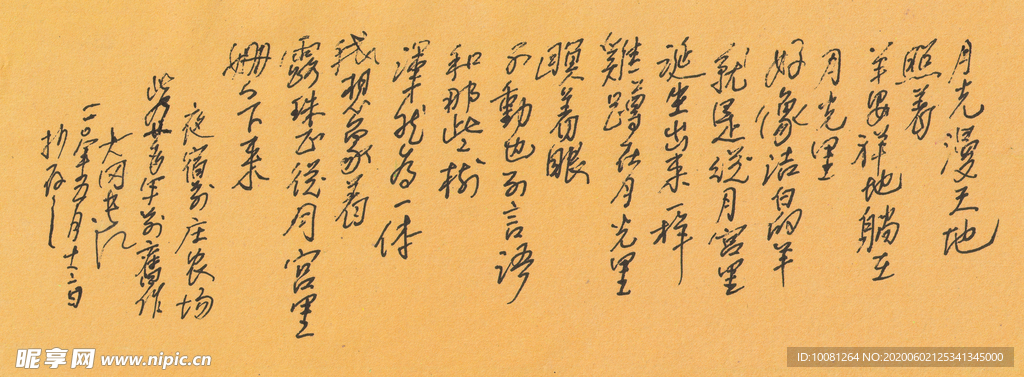 月光漫天地
照着
羊安祥地躺在
月光里
好像洁白的羊
就是從月宫里
诞生出来一样
雞蹲在月光里
瞑着眼
不動也不言语
和那些树
渾然为一体
我想象着
露珠正從月宫里
姗姗下来
夜宿前庄农场
此为廿五年前舊作
一〇年五月十六日
抄存之
昵享网 www.nipic.cn
ID:10081264 NO:20200602125341345000